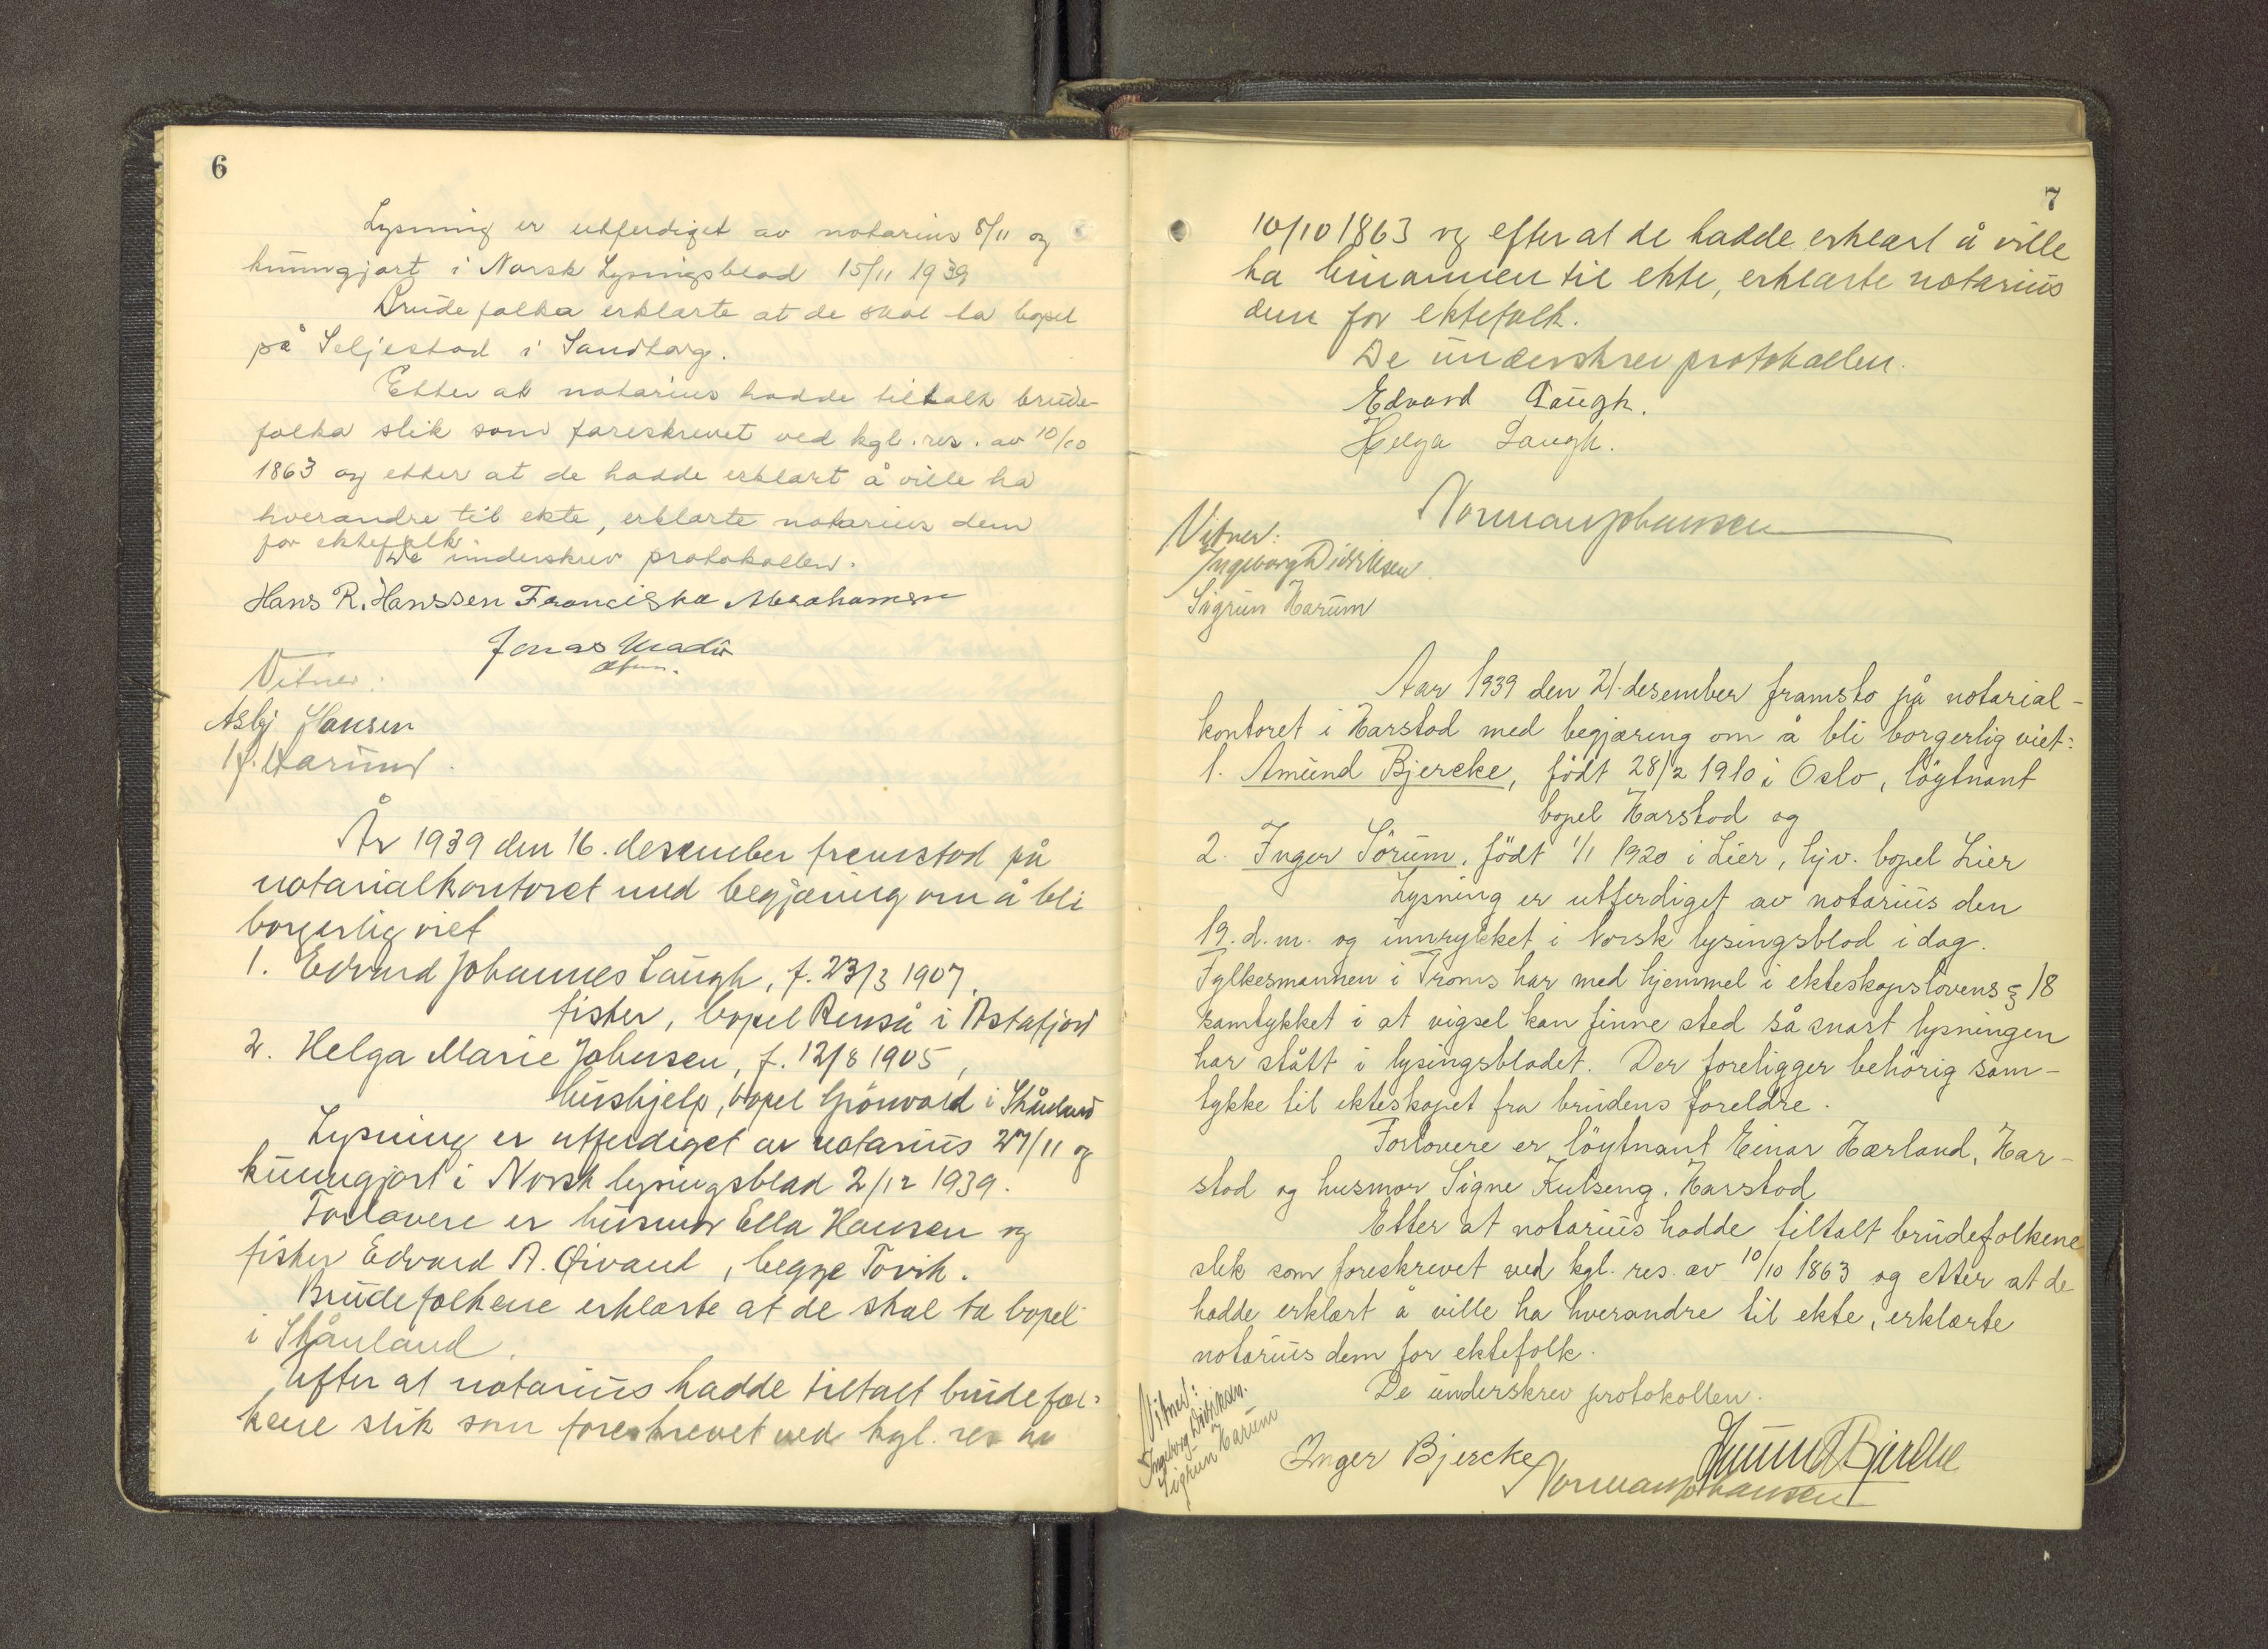 6
Lysning er utferdiget av notarius 8/11 og
kunngjort i Norsk Lysingsblad 15/11 1939
Brudefolka erklærte at de skal ta bopel
på Seljestad i Sandtorg.
Etter at notarius hadde tiltalt brude-
folka slik som foreskrevet ved kgl. res. av 10/10
1863 og etter at de hadde erklært å ville ha
hverandre til ekte, erklærte notarius dem
for ektefolk.
De underskrev protokollen.
Hans R. Hanssen Franciska Abrahamsen
Jonas
Vitner:
Asbj Hansen
Harum.
År 1939 den 16. desember fremstod på
notarialkontoret med begjæring om å bli
borgerlig viet
1. Edvard Johannes Laugh, f. 23/3 1907,
fisker, bopel Renså i Astafjord
2. Helga Marie Johnsen, f. 12/8 1905,
hushjelp, bopel Grönvold i Skånland
Lysning er utferdiget av notarius 27/11 og
kunngjort i Norsk lysingsblad 2/12 1939.
Forlovere er husmor Ella Hansen og
fisker Edvard A. , begge Tovik.
Brudefolkene erklærte at de skal ta bopel
i Skånland.
Efter at notarius hadde tiltalt brudefol-
kene slik som foreskrevet ved kgl. res av
7
10/10 1863 og efter at de hadde erklært å ville
ha hinannen til ekte, erklærte notarius
dem for ektefolk.
De underskrev protokollen.
Edvard Laugh.
Helga Laugh.
Norman Johansen
Vitner:
Ingeborg Didriksen
Sigrun Harum
Aar 1939 den 21. desember framsto på notarial-
kontoret i Harstad med begjæring om å bli borgerlig viet:
1. Amund Bjercke, født 28/2 1910 i Oslo, löytnant
bopel Harstad og
2. Inger Sörum, født 1/1 1920 i Lier, hjv. bopel Lier
Lysning er utferdiget av notarius den
19. d.m. og innrykket i Norsk lysingsblad i dag.
Fylkesmannen i Troms har med hjemmel i ekteskapslovens § 18
samtykket i at vigsel kan finne sted så snart lysningen
har stått i lysingsbladet. Der foreligger behörig sam-
tykke til ekteskapet fra brudens foreldre.
Forlovere er löytnant Einar Hærland, Har-
stad og husmor Signe Kulseng, Harstad
Etter at notarius hadde tiltalt brudefolkene
slik som foreskrevet ved kgl. res. av 10/10 1863 og etter at de
hadde erklært å ville ha hverandre til ekte, erklærte
notarius dem for ektefolk.
De underskrev protokollen.
Vitner:
Ingeborg Didriksen.
Sigrun Harum
Inger Bjercke
Amund Bjercke
Norman Johansen